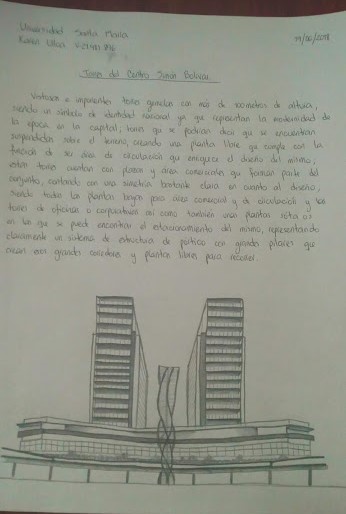 Universidad Santa María
Karin Ulloa
Torres del Centro Simón Bolívar
Vistosas e imponentes torres gemelas con más de 100 metros de altura,
siendo un símbolo de identidad nacional ya que representan la modernidad de
la época en la capital, torres que se podrían decir que se encuentran
suspendidas sobre el terreno, creando una planta libre que cumple con la
función de ser área de circulación que enriquece el diseño del mismo,
estas torres cuentan con plazas y área comerciales que forman parte del
conjunto, contando con una simetría bastante clara en cuanto al diseño,
siendo todas las plantas bajas para área comercial y de circulación y las
torres de oficinas o corporativos así como también unas plantas sótanos
en las que se puede encontrar el estacionamiento del mismo, representando
claramente un sistema de estructura de pórtico con grandes pilares que
crean esos grandes corredores y plantas libres para recorrer.